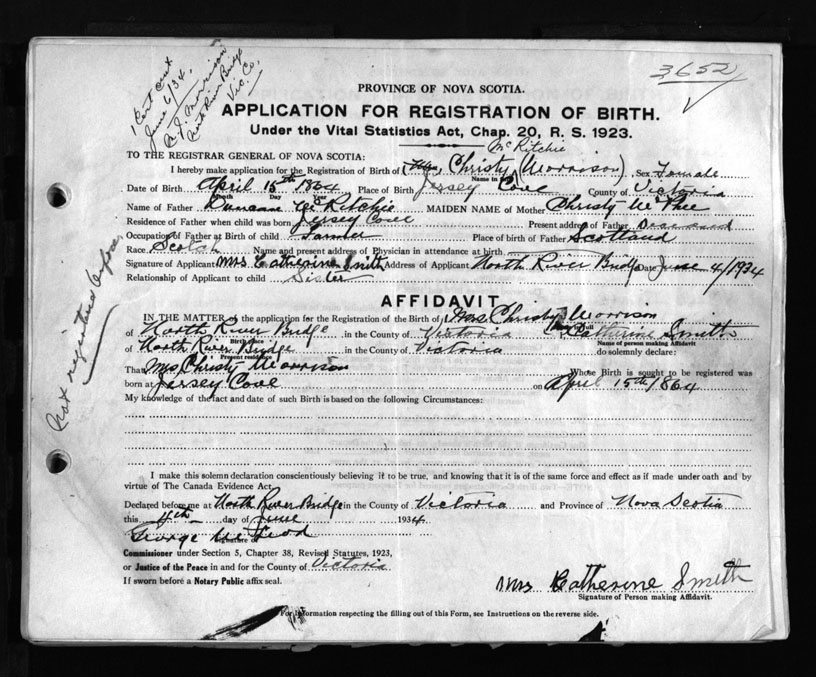 1 Cert sent
June 6/34.
A. J. Morrison
North River Bridge
Vic. Co.
3652
PROVINCE OF NOVA SCOTIA.
APPLICATION FOR REGISTRATION OF BIRTH.
Under the Vital Statistics Act, Chap. 20, R. S. 1923.
McRitchie
TO THE REGISTRAR GENERAL OF NOVA SCOTIA:
I hereby make application for the Registration of Birth of Christy (Morrison) Sex Female
Name in full
Date of Birth April 15th 1864 Place of Birth Jersey Cove County of Victoria
Month Day Year
Name of Father Duncan McRitchie MAIDEN NAME of Mother Christy McPhee
Residence of Father when child was born Jersey Cove Present address of Father Deceased
Occupation of Father at Birth of child Farmer Place of birth of Father Scotland
Race Scotch Name and present address of Physician in attendance at birth
Signature of Applicant Mrs Catherine Smith Address of Applicant North River Bridge Date June 4/1934
Relationship of Applicant to child Sister
Not registered before
AFFIDAVIT
IN THE MATTER of the application for the Registration of the Birth of Mrs Christy Morrison
of North River Bridge in the County of Victoria Catherine Smith
Birth place Name of person making Affidavit
of North River Bridge in the County of Victoria do solemnly declare:
Present residence
That Mrs Christy Morrison Whose Birth is sought to be registered was
born at Jersey Cove on April 15th/1864
My knowledge of the fact and date of such Birth is based on the following Circumstances:
I make this solemn declaration conscientiously believing it to be true, and knowing that it is of the same force and effect as if made under oath and by
virtue of The Canada Evidence Act.
Declared before me at North River Bridge in the County of Victoria and Province of Nova Scotia
this 4th day of June 1934
George McLeod
Signature of
Commissioner under Section 5, Chapter 38, Revised Statutes, 1923,
or Justice of the Peace in and for the County of Victoria
If sworn before a Notary Public affix seal.
Mrs Catherine Smith
Signature of Person making Affidavit.
For information respecting the filling out of this Form, see Instructions on the reverse side.